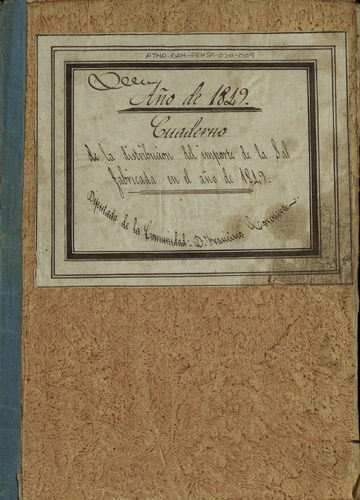 ATHA-DAH-FCHSA-020-009
Año de 1849.
Cuaderno
de la distribucion del importe de la Sal
fabricada en el año de 1849.
Diputado de la Comunidad: Dn. Francisco